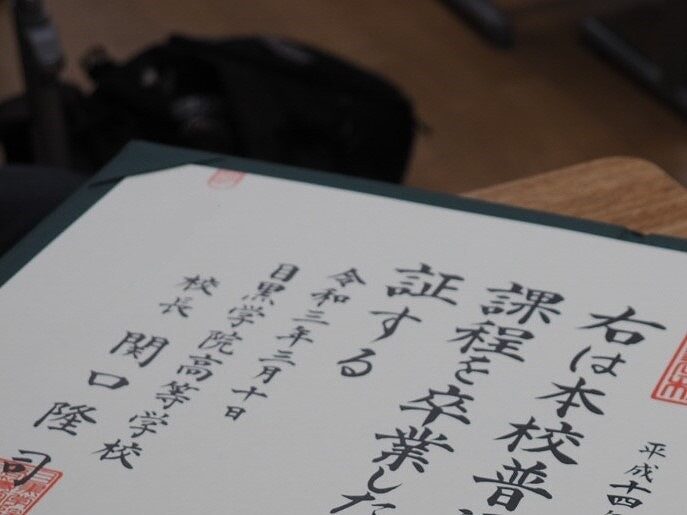 平成十四年
右は本校普通
課程を卒業した
証する
令和三年三月十日
目黒学院高等学校
校長 関口隆司